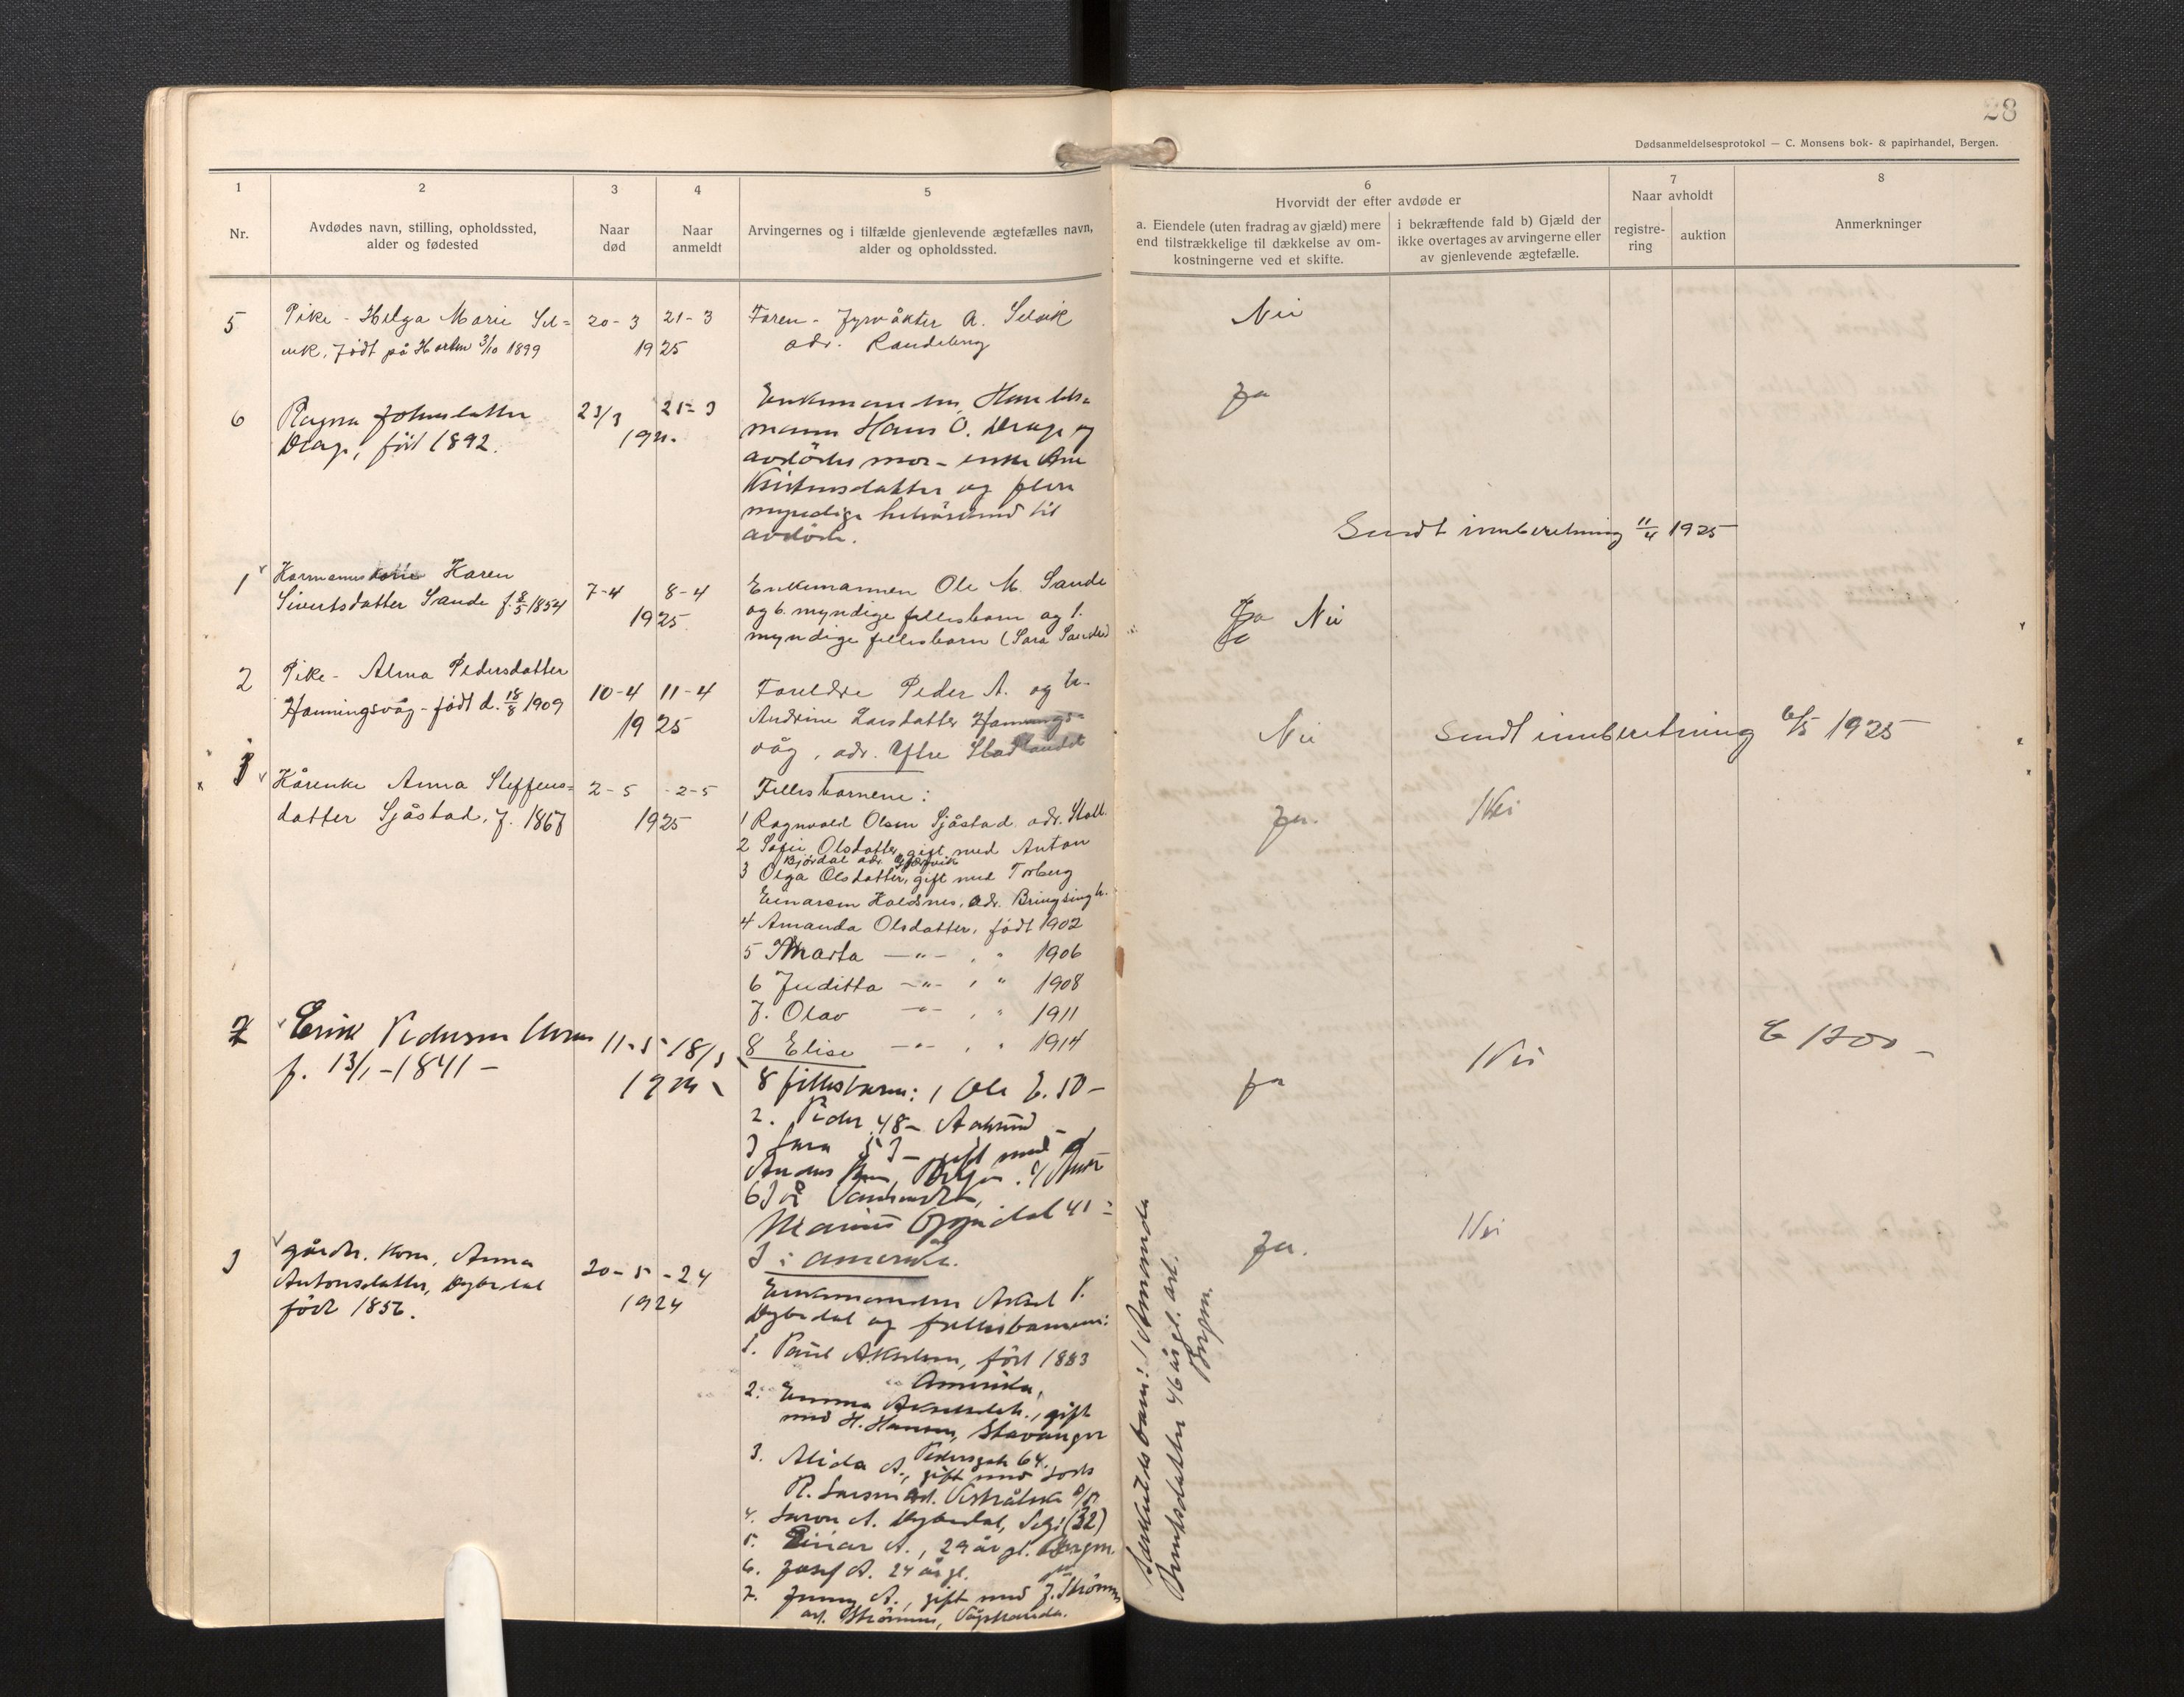 28
Dødsanmeldelsesprotokol — C. Monsens bok- & papirhandel, Bergen.
1
Nr.
2
Avdødes navn, stilling, opholdssted,
alder og fødested
3
Naar
død
4
Naar
anmeldt
5
Arvingernes og i tilfælde gjenlevende ægtefælles navn,
alder og opholdssted.
6
Hvorvidt der efter avdøde er
a. Eiendele (uten fradrag av gjæld) mere
end tilstrækkelige til dækkelse av om-
kostningerne ved et skifte.
i bekræftende fald b) Gjæld der
ikke overtages av arvingerne eller
av gjenlevende ægtefælle.
7
Naar avholdt
registre-
ring
auktion
8
Anmerkninger
5
Pike - Helga Marie Sel=
vik, født på Harken 3/10 1899
20-3 21-3
1925
Faren - fyrvåkter A. Selvik
adr. Raudeberg
Nei
6
Ragna Johnsdatter
Drage, født 1892.
23/3 25-3
Enkemannen, Handels-
mann Hans O. Drage og
avdødes mor - enke Ane
Kristensdatter og flere
myndige helsøskend til
avdøde.
Ja
Sendt innberetning 11/4 1925
1
Karen
Sivertsdatter Sande f. 8/5 1854
7-4 8-4
1925
Enkemannen Ole M. Sande
og 6 myndige fellesbarn og 1.
myndige fellesbarn (Sara Sande)
Ja Nei
2
Pike - Alma Pedersdatter
Honningsvåg - født d. 18/8 1909
10-4 11-4
1925
Foreldre Peder A. og h.
Andrine Larsdatter Honnings-
våg, adr. Ytre Stadlandet
Nei
Sendt innberetning 6/5 1925
1
Kårenke Anna Steffens=
datter Sjåstad, f. 1867
2-5 2-5
1925
Fellesbarnene:
1 Ragnvald Olsen Sjåstad. adr. Stadl.
2 Sofie Olsdatter, gift med Anton
Bjørdal adr.
3 Olga Olsdatter, gift med Torberg
Einarsen Holdsnes, adr. Bringsingh.
4 Amanda Olsdatter, født 1902
5 Marta —"— , " 1906
6 Juditta —"— , " 1908
7. Olav —"— , " 1911
8 Elise —"— , " 1914
Ja.
Nei
2
Erik Pedersen
f. 13/1-1841-
11-5 18/5
8 fellesbarn: 1 Ole E. 50-
2. Peder 48-
3 Lara 53- gift med
41
3 i amerika.
Ja
Nei
1200 -
3
gårdm. kone, Anna
Antonsdatter, Dybedal
født 1856.
20-5-24
1924
Enkemannen Aksel P.
Dybedal og fellesbarnene:
1. Paul Akselsen, født 1883
Amerika,
2. Emma Akselsdt., gift
med H. Hansen, Stavanger
Pedersgate 64.
3. Alida A., gift med
R. Larsen
4. A. Dybedal, Selje (32)
5. Einar A., 29 år gl. Bergen.
6. Josef A. 24 år gl.
7. Jenny A., gift med J. Strømmen
adr. Strømmen, Vågstranda.
Ja.
Nei
Særkullsbarn: 1 Amanda
Berntsdatter 46 år gl. adr.
Bergen.